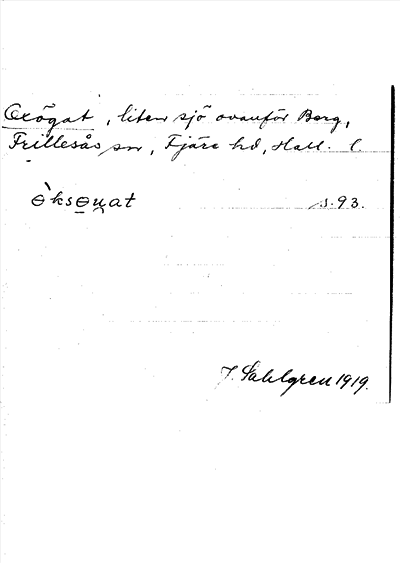 Oxögat, liten sjö ovanför Berg,
Frillesås sn, Fjäre hd, Hall. l
ɵ̀ksɵu̯at s. 93.
J. Sahlgren 1919.